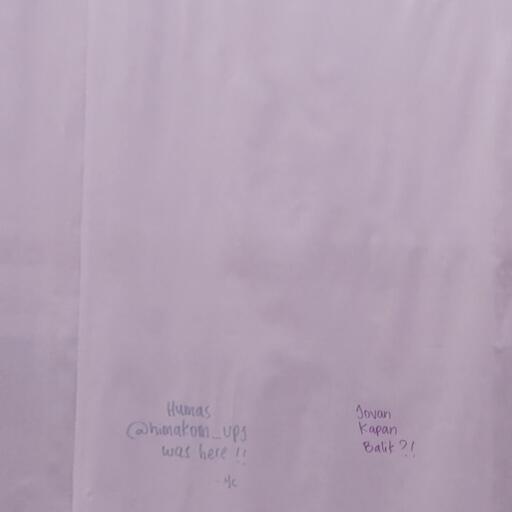 Humas
@himakom_ups
was here !!
Jovan
Kapan
Balik ?!